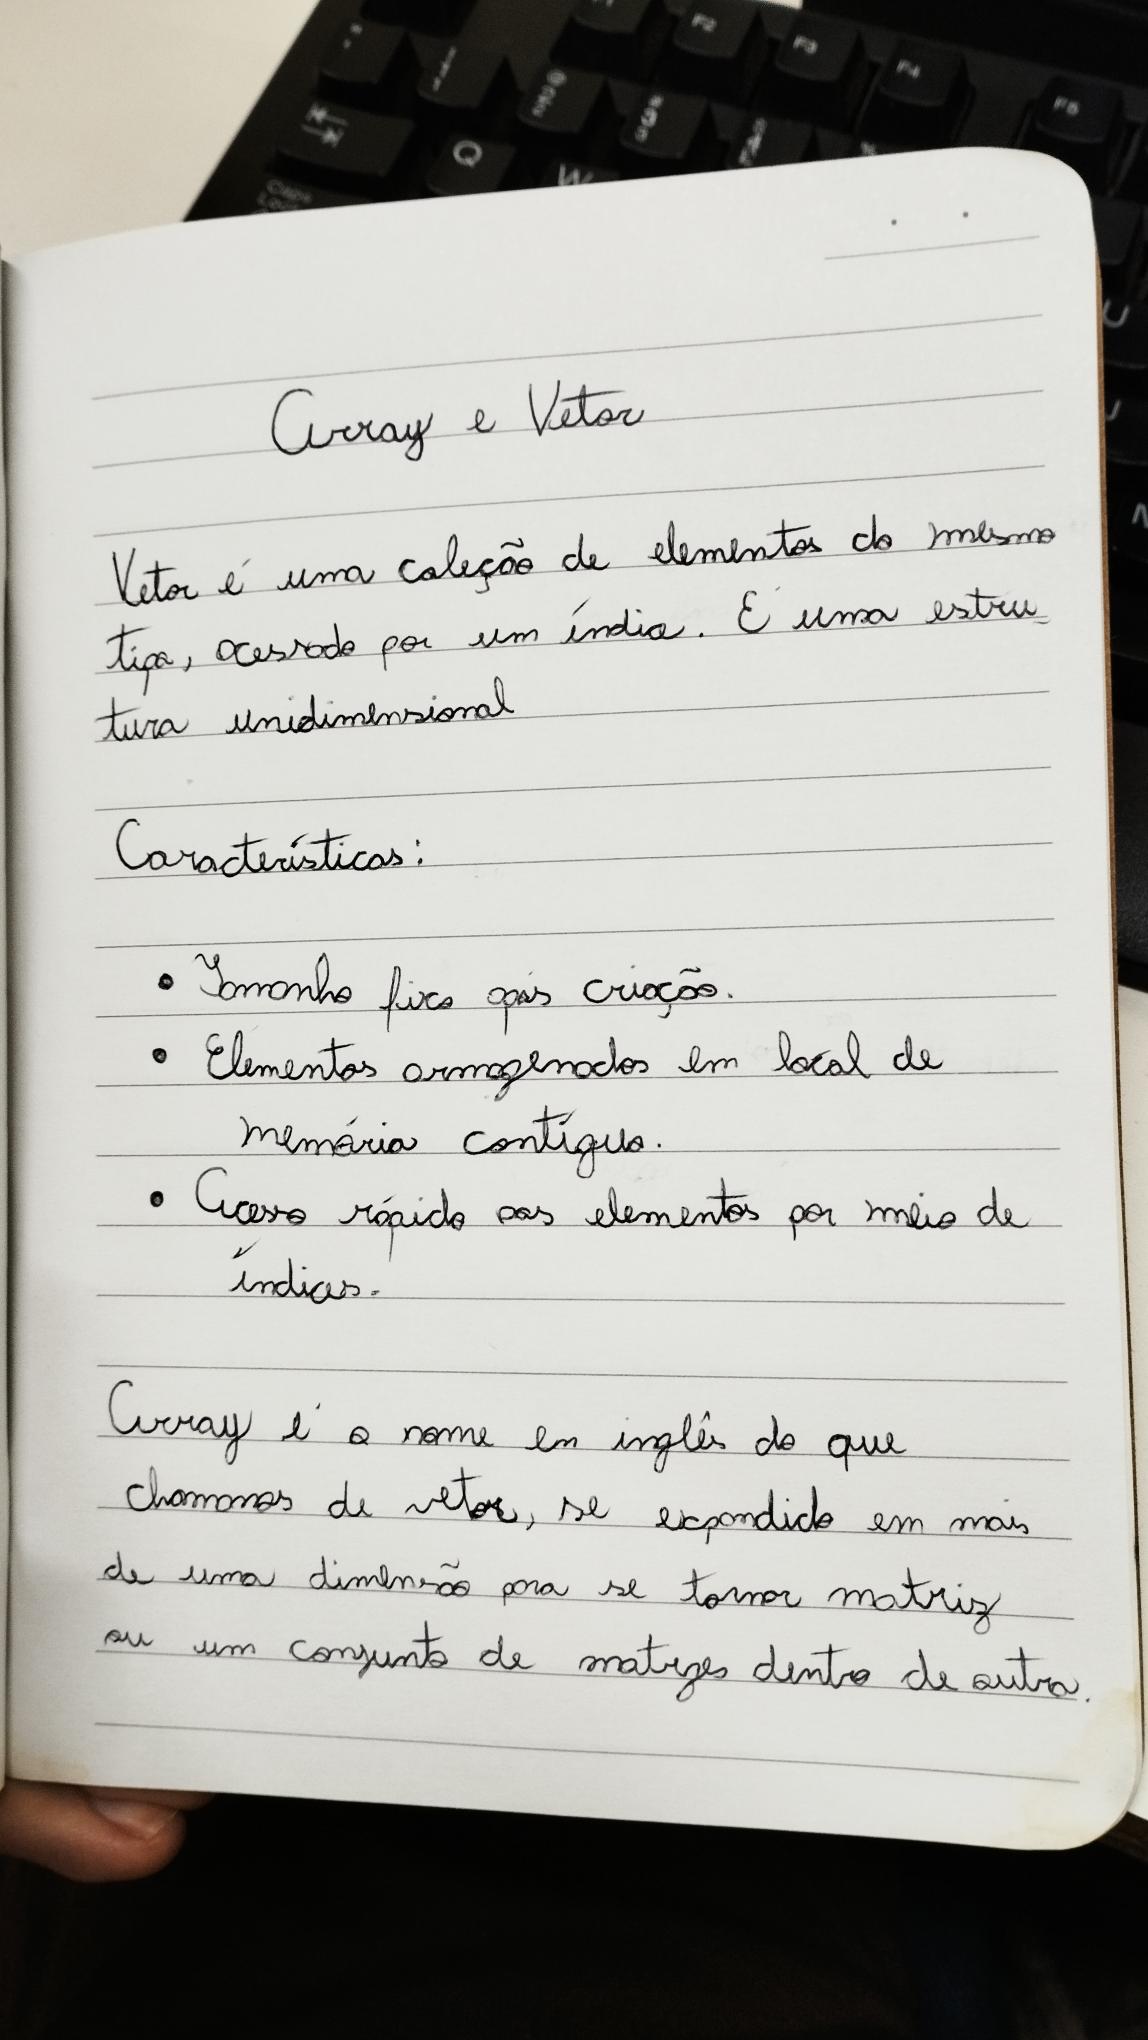 F2
F3
F4
F5
Q
W
Caps
Lock
U
Array e Vetor
Vetor é uma coleção de elementos do mesmo
tipo, acessado por um índia. É uma estru-
tura unidimensional
Características:
• Tamanho fixo após criação.
• Elementos armagenados em local de
memória contígua.
• Acesso rápido aos elementos por meio de
índices.
Array é o nome em inglês do que
chamamos de vetor, se expandido em mais
de uma dimensão para se tornar matriz
ou um conjunto de matrizes dentro de outra.